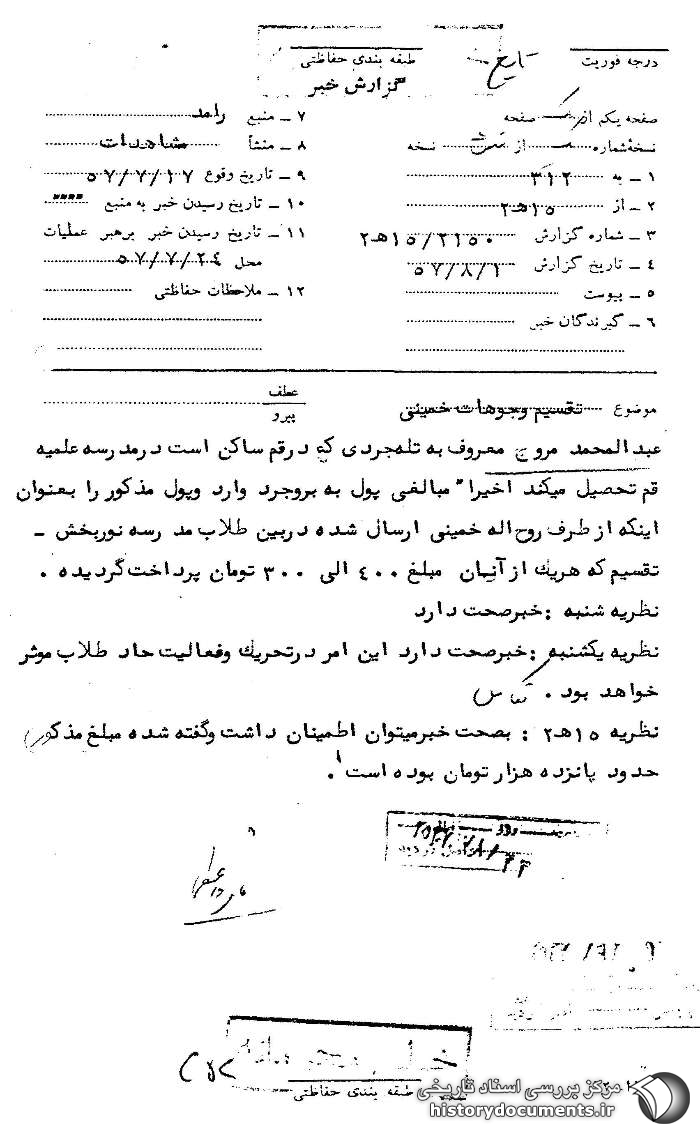 درجه فوریت
طبقه بندی حفاظتی
گزارش خبر
صفحه یکم از یک صفحه
نسخهٔ شماره از نسخه
۱ ــ به ۳۱۲
۲ ــ از ۱۵هـ۲
۳ ــ شماره گزارش ۲۱۵۰/۱۵هـ۲
۴ ــ تاریخ گزارش ۵۷/۸/۱
۵ ــ پیوست
۶ ــ گیرندگان خبر
۷ ــ منبع رامد
۸ ــ منشأ مشاهدات
۹ ــ تاریخ وقوع ۵۷/۷/۱۷
۱۰ ــ تاریخ رسیدن خبر به منبع """"
۱۱ ــ تاریخ رسیدن خبر برهبر عملیات
محل ۵۷/۷/۲۴
۱۲ ــ ملاحظات حفاظتی
موضوع تقسیم وجوهات خمینی
عطف
پیرو
عبدالمحمد مروج معروف به تله‌جردی که درقم ساکن است درمدرسه علمیه
قم تحصیل میکند اخیرا" مبالغی پول به بروجرد وارد وپول مذکور را بعنوان
اینکه از طرف روح‌اله خمینی ارسال شده دربین طلاب مد رسه نوربخش ــ
تقسیم که هریك از آنان مبلغ ۴۰۰ الی ۳۰۰ تومان پرداخت گردیده .
نظریه شنبه : خبرصحت دارد
نظریه یکشنبه : خبرصحت دارد این امر درتحریك وفعالیت حاد طلاب موثر
خواهد بود .
نظریه ۱۵هـ۲ : بصحت خبرمیتوان اطمینان داشت وگفته شده مبلغ مذکور
حدود پانزده هزار تومان بوده است .
طبقه بندی حفاظتی
مرکز بررسی اسناد تاریخی
historydocuments.ir